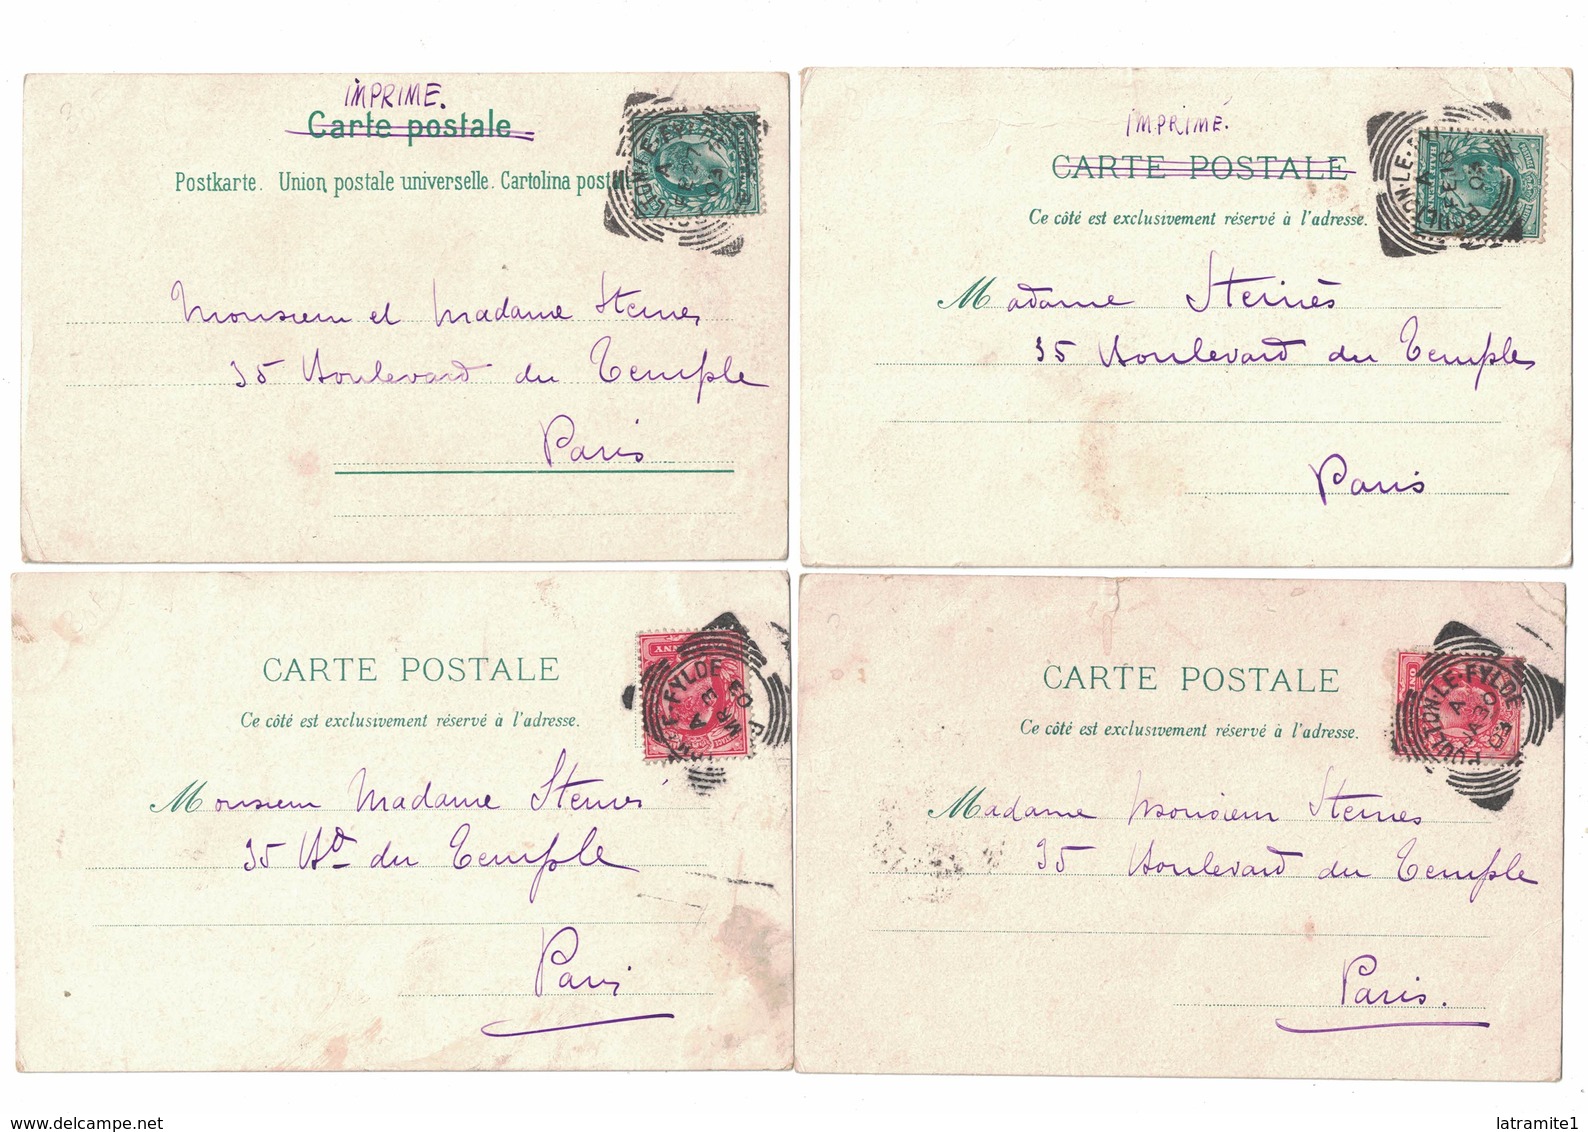 IMPRIME.
Carte postale
Postkarte. Union postale universelle. Cartolina post
Monsieur et Madame Sternes
35 Boulevard du Temple
Paris
IMPRIMÉ.
CARTE POSTALE
Ce côté est exclusivement réservé à l'adresse.
Madame Sternès
35 Boulevard du Temple
Paris
CARTE POSTALE
Ce côté est exclusivement réservé à l'adresse.
FYLDE
A
MR 3
03
Monsieur Madame Sternes
35 Bd du Temple
Paris
CARTE POSTALE
Ce côté est exclusivement réservé à l'adresse.
POULTON-LE-FYLDE
A
JA 30
03
Madame Monsieur Sternes
35 Boulevard du Temple
Paris.
www.delcampe.net
latramite1